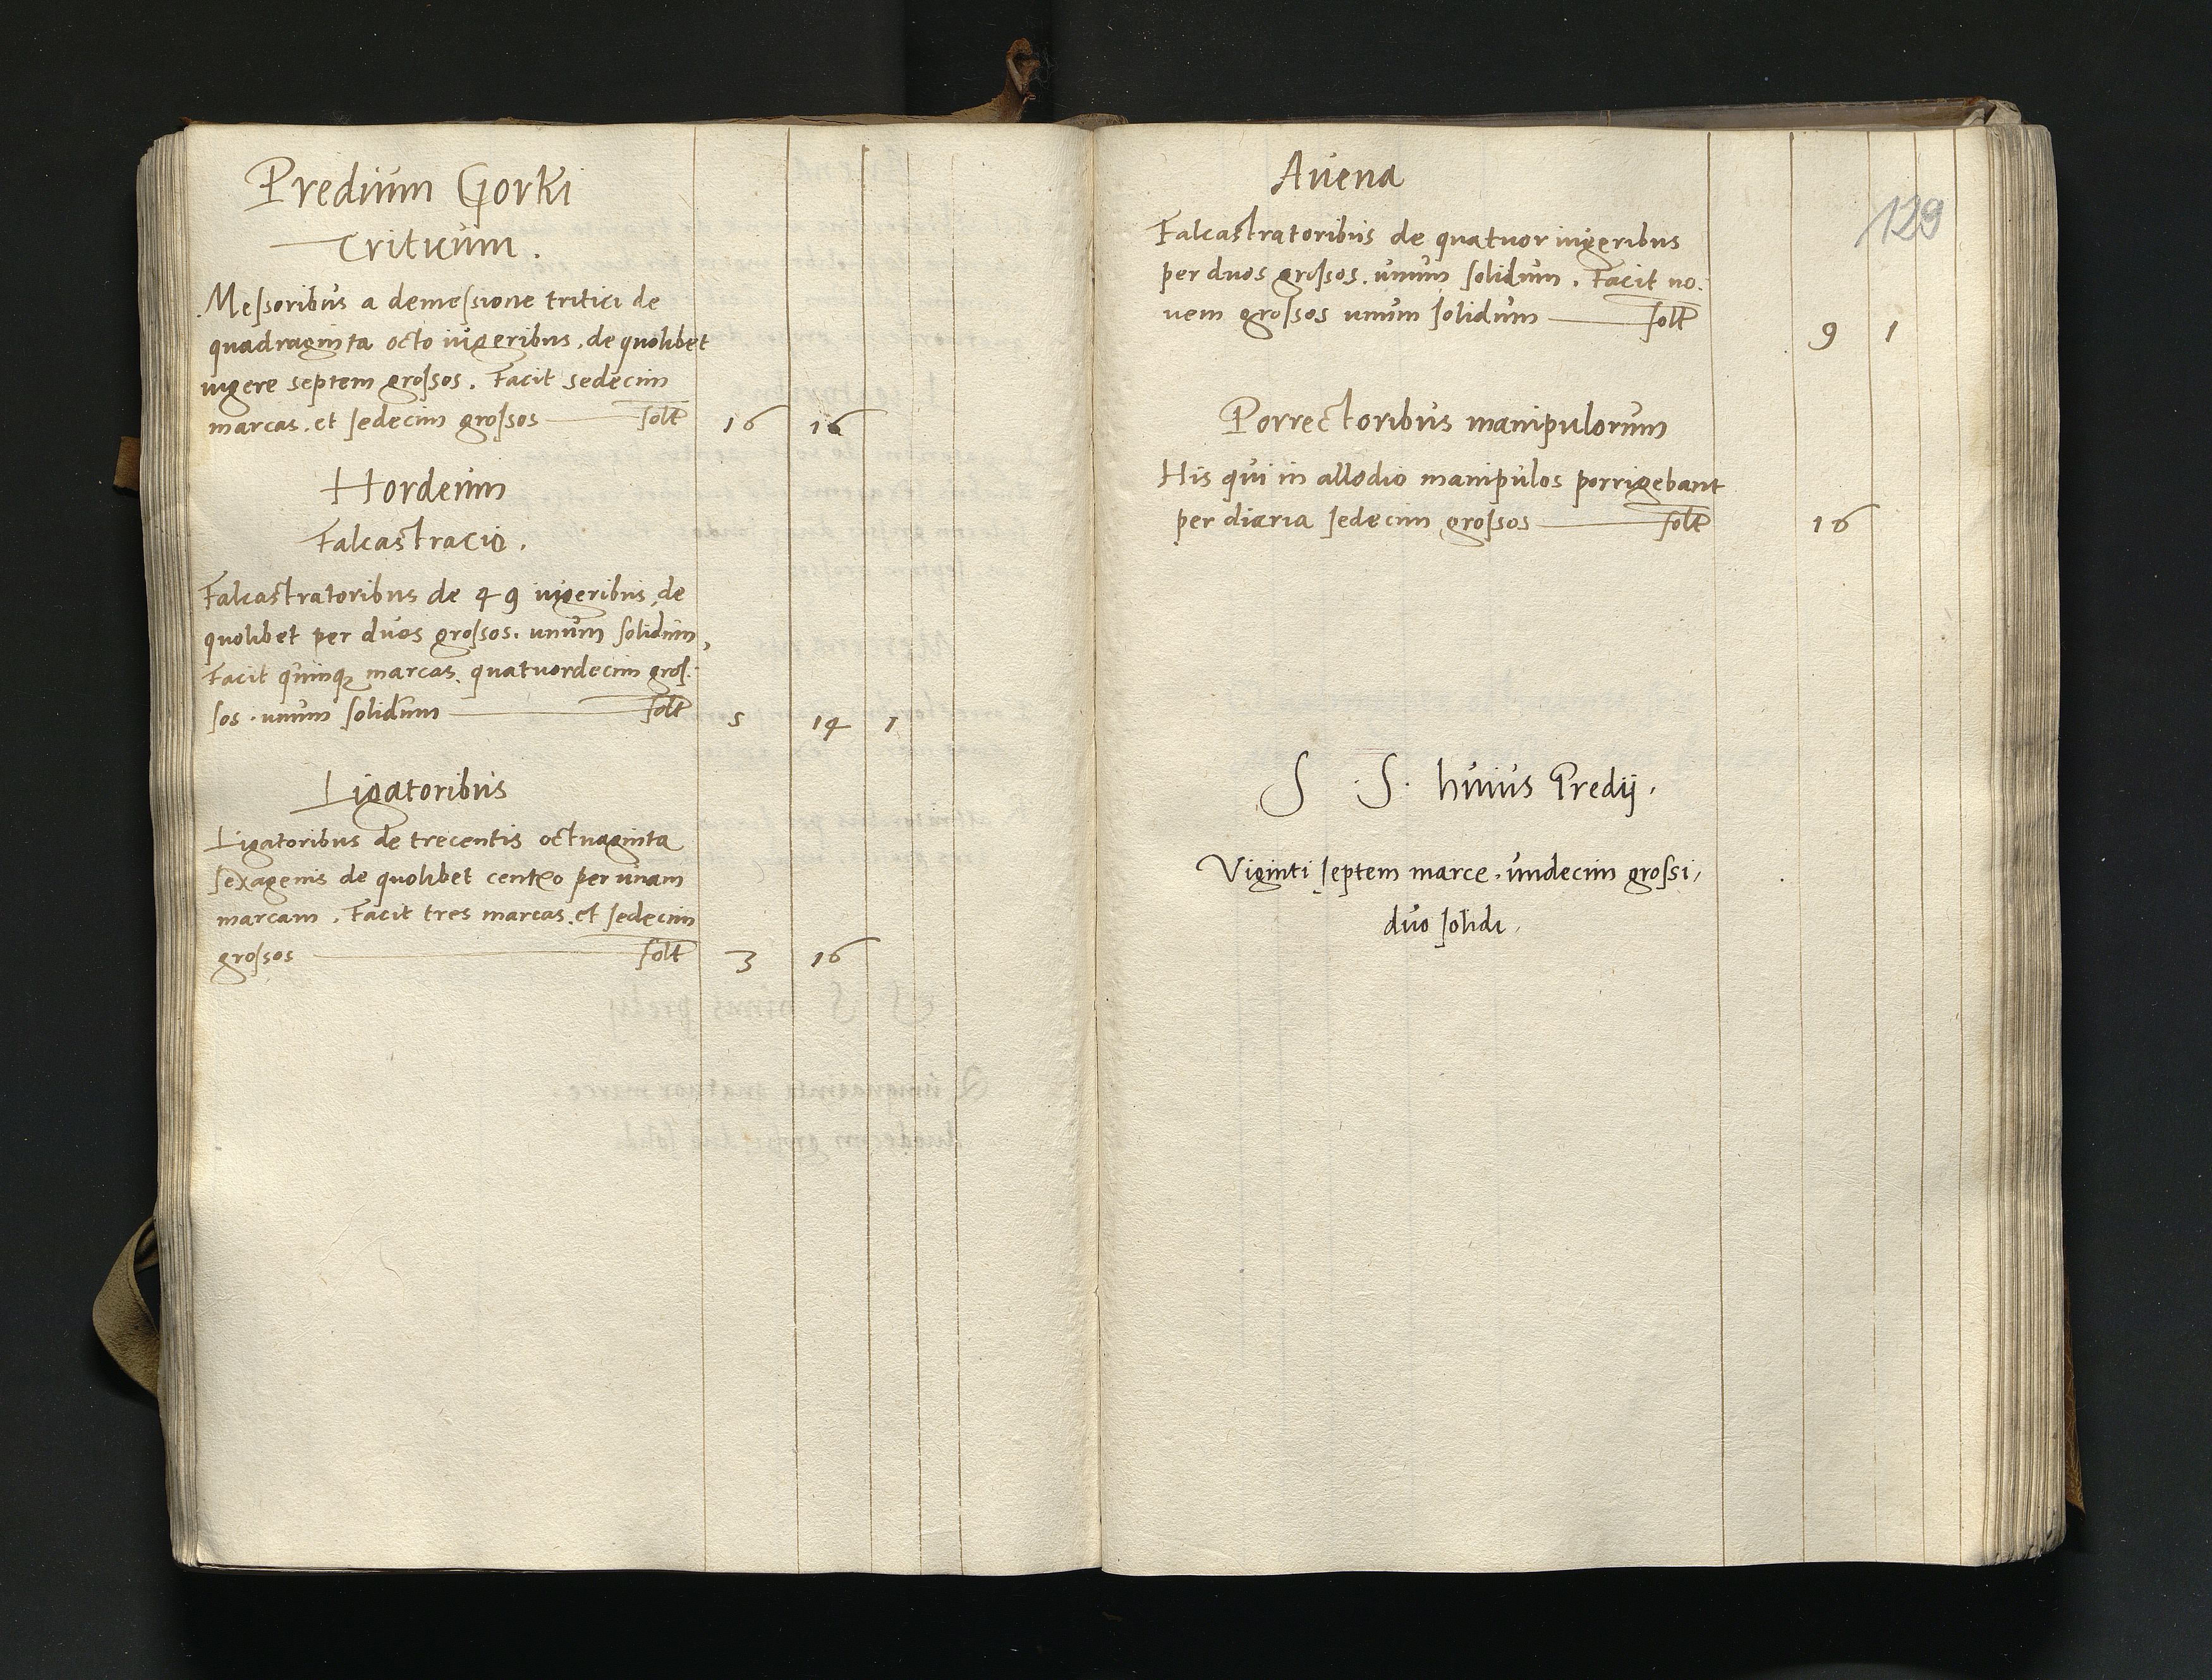 Predium Gorki
Triticum.
Messoribus a demessione tritici de
quadraginta octo iugeribus, de quolibet
iugere septem grossos. Facit sedecim
marcas, et sedecim grossos — solt 16 16
Hordeum
Falcastracio.
Falcastratoribus de 49 iugeribus, de
quolibet per duos grossos. unum solidum,
Facit quinq; marcas, quatuordecim gros:
sos. unum solidum — solt 5 14 1
Ligatoribus
Ligatoribus de trecentis octuaginta
sexagenis de quolibet cento per unam
marcam. Facit tres marcas, et sedecim
grossos — solt 3 16
Auena
129
Falcastratoribus de quatuor iugeribus
per duos grossos. unum solidum. Facit no:
uem grossos unum solidum — solt 9 1
Porrectoribus manipulorum
His qui in allodio manipulos porrigebant
per diaria sedecim grossos — solt 16
S S. huius Predij.
Viginti septem marce. undecim grossi,
duo solidi.